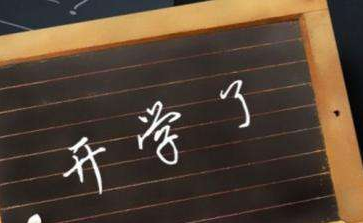 开学了